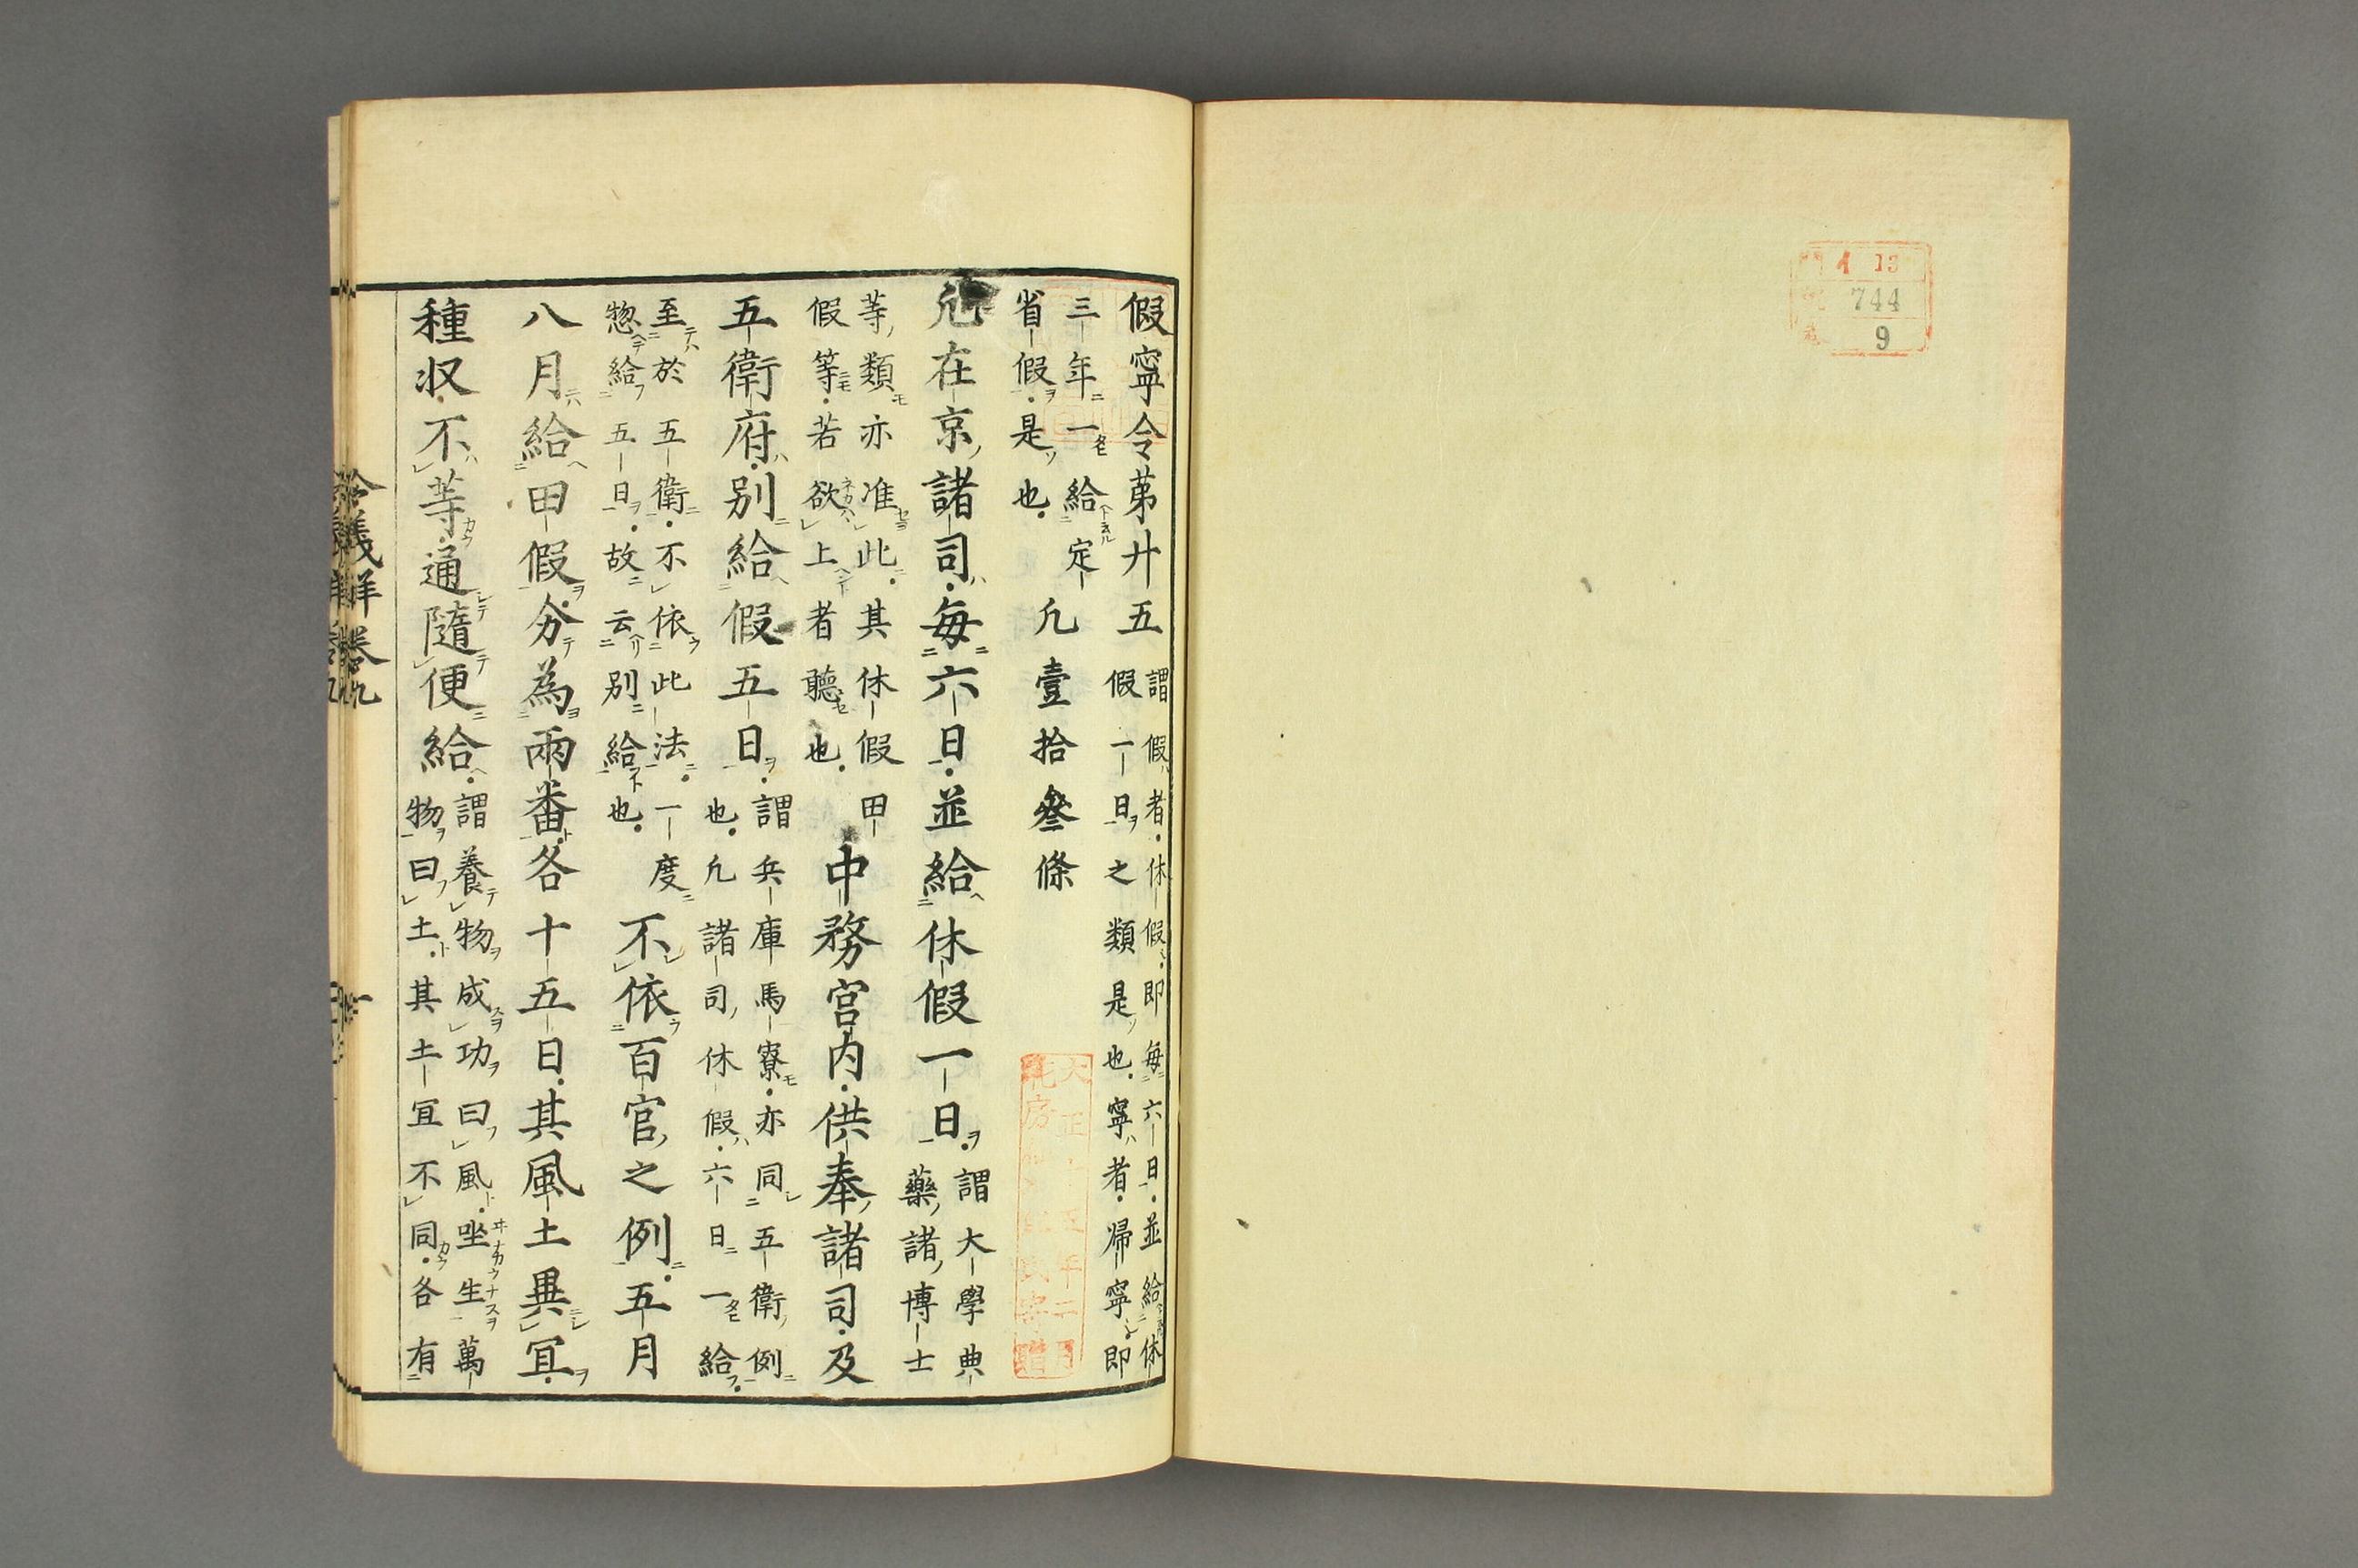 イ 13
744
9
假寧令第廿五 謂假者休假即毎六日並給休
假一日之類是也寧者帰寧即
三年一給定
省假是也 凢壹拾叄條
凢在京諸司毎六日並給休假一日 謂大學典
藥諸博士
等類亦准此其休假田
假等若欲上者聽也 中務宮内供奉諸司及
五衛府別給假五日 謂兵庫馬寮亦同五衛例
也凢諸司休假六日一給
至於五衛不依此法一度
惣給五日故云別給也 不依百官之例五月
八月給田假分為兩番各十五日其風土異冝
種収不等通隨便給 謂養物成功曰風坐生萬
物曰土其土冝不同各有